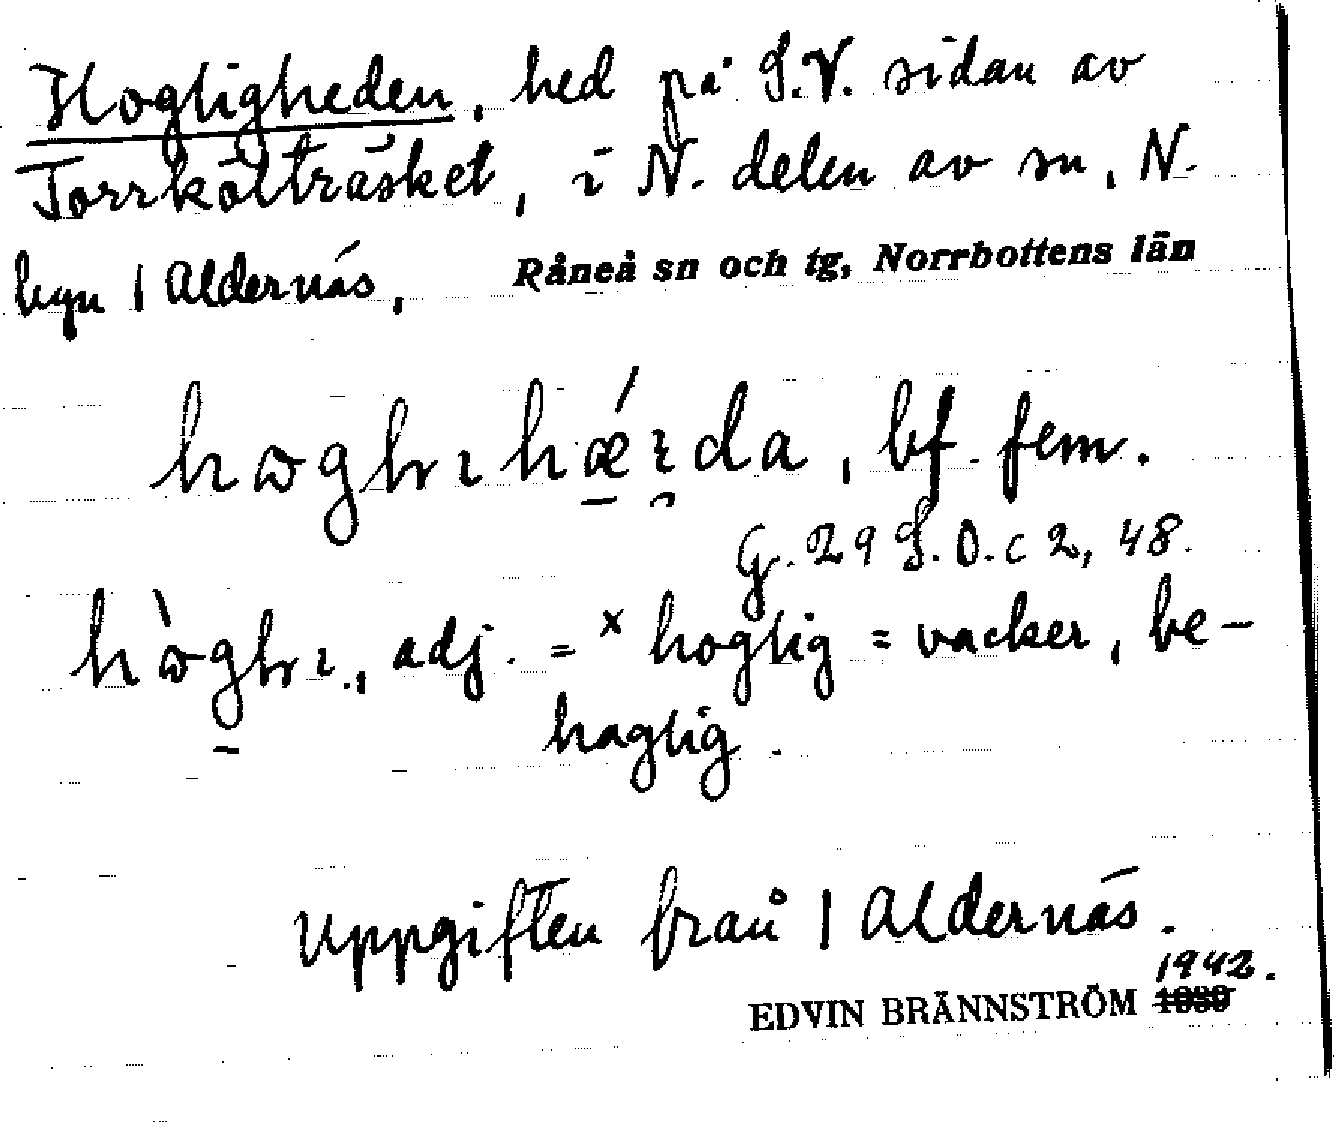 Hogligheden, hed på S.V. sidan av
Torrkölträsket, i N. delen av sn, N.
byn | Aldernäs, Råneå sn och tg, Norrbottens län
bf. fem.
G. 29 S.O. c 2, 48.
adj. = × hoglig = vacker, be-
haglig.
Uppgiften från | Aldernäs.
1942.
EDVIN BRÄNNSTRÖM